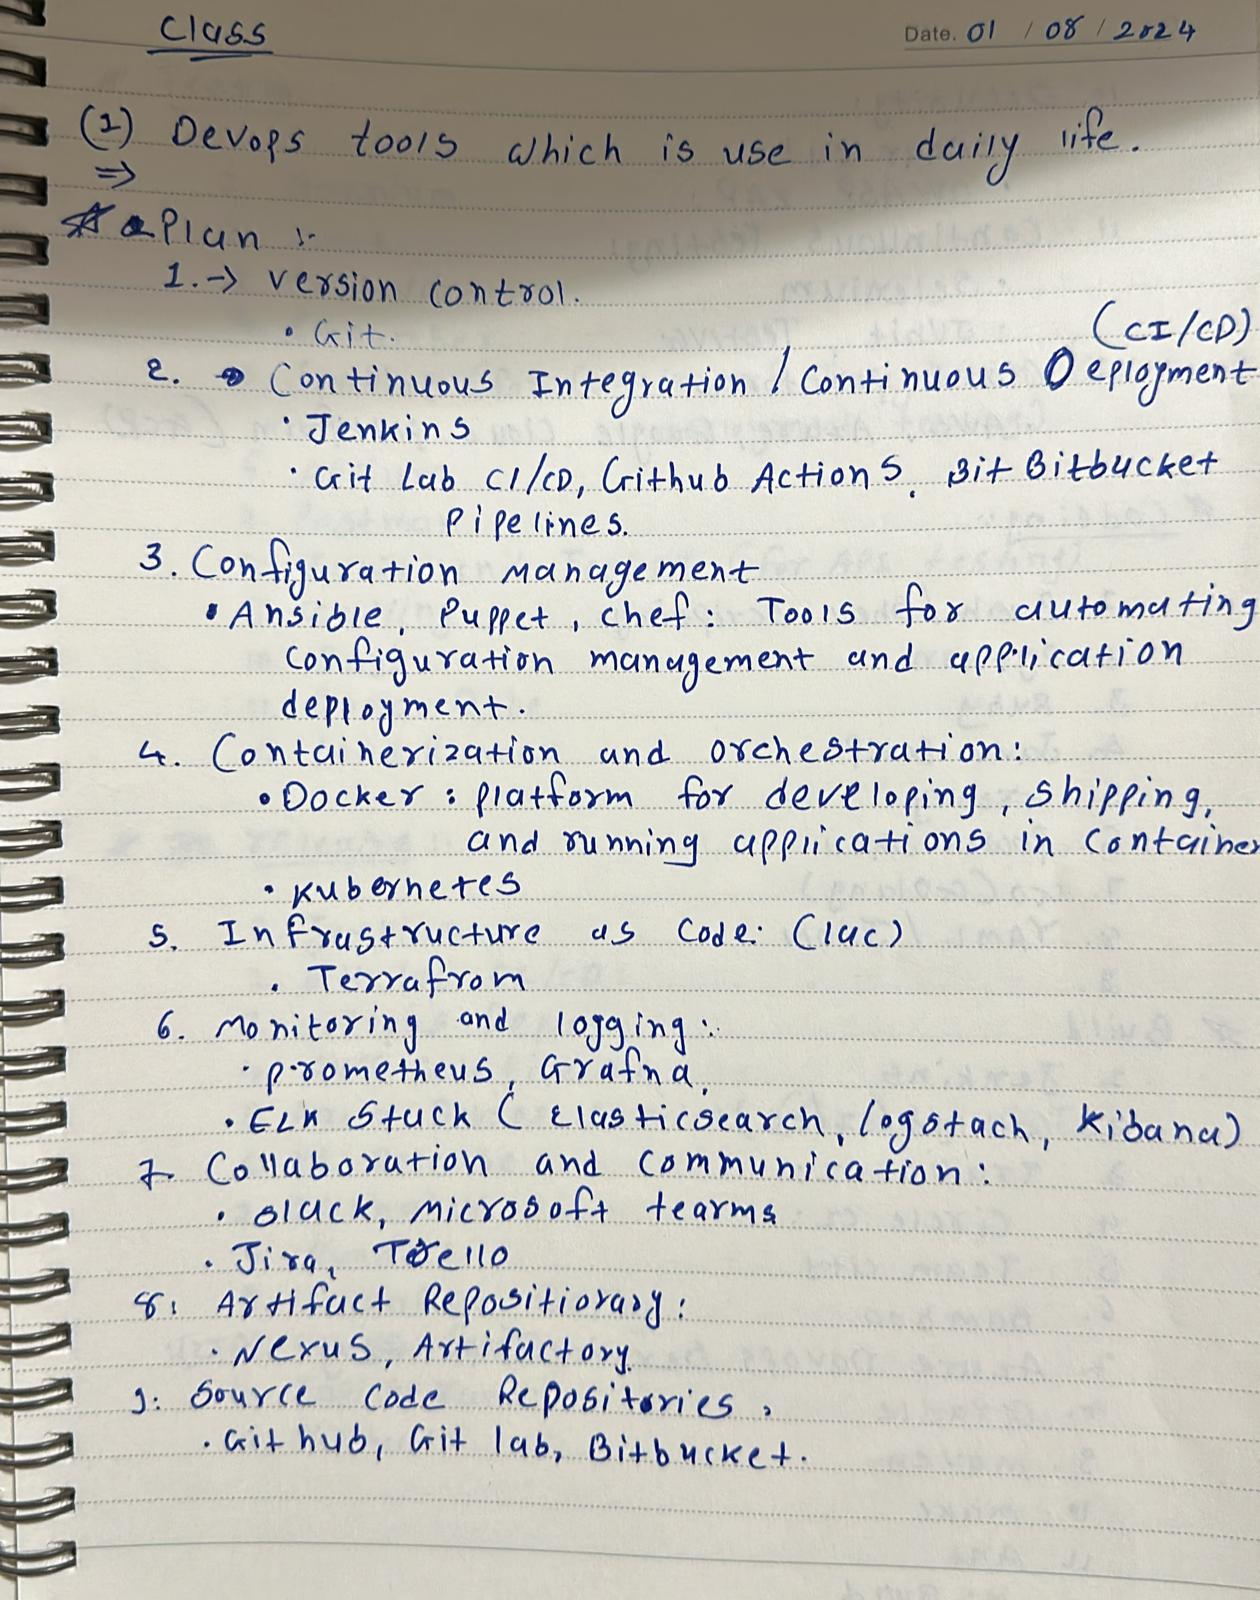 Class
Date. 01 / 08 / 2024
(1) Devops tools which is use in daily life.
⇒
Plan :-
1.→ version control.
• Git.
(CI/CD)
2. → Continuous Integration / Continuous Deployment
• Jenkins
• Git Lab CI/CD, Github Actions, Bit Bitbucket
Pipelines.
3. Configuration management
• Ansible, Puppet, chef: Tools for automating
configuration management and application
deployment.
4. Containerization and orchestration:
• Docker : platform for developing, shipping,
and running applications in container
• kubernetes
5. Infrastructure as Code: (Iac)
• Terrafrom
6. Monitoring and logging:
• prometheus, Grafna,
• ELK Stack ( Elasticsearch, logstach, Kibana)
7. Collaboration and communication:
• slack, microsoft tearms
• Jira, Trello
8: Artifact Repositiorary:
• Nexus, Artifactory.
9: Source Code Repositories,
• Git hub, Git lab, Bitbucket.